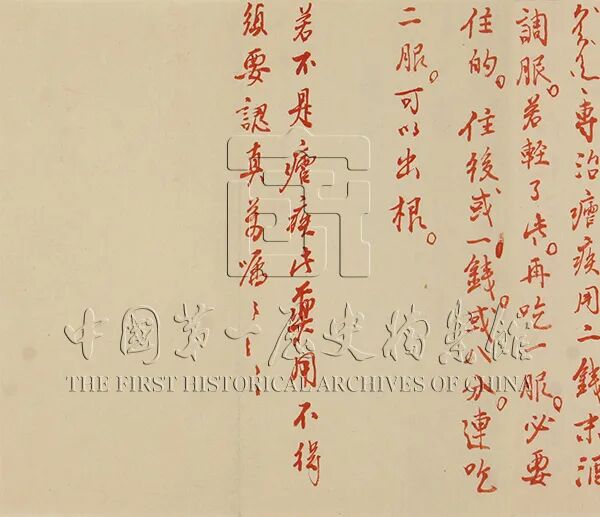 專治瘧疾用二錢末酒
調服。若輕了些。再吃一服。必要
住的。住後或一錢。或八分。連吃
二服。可以出根。
若不是瘧疾此藥用不得
須要認真萬嘱〻〻〻
中國第一歷史檔案館
THE FIRST HISTORICAL ARCHIVES OF CHINA